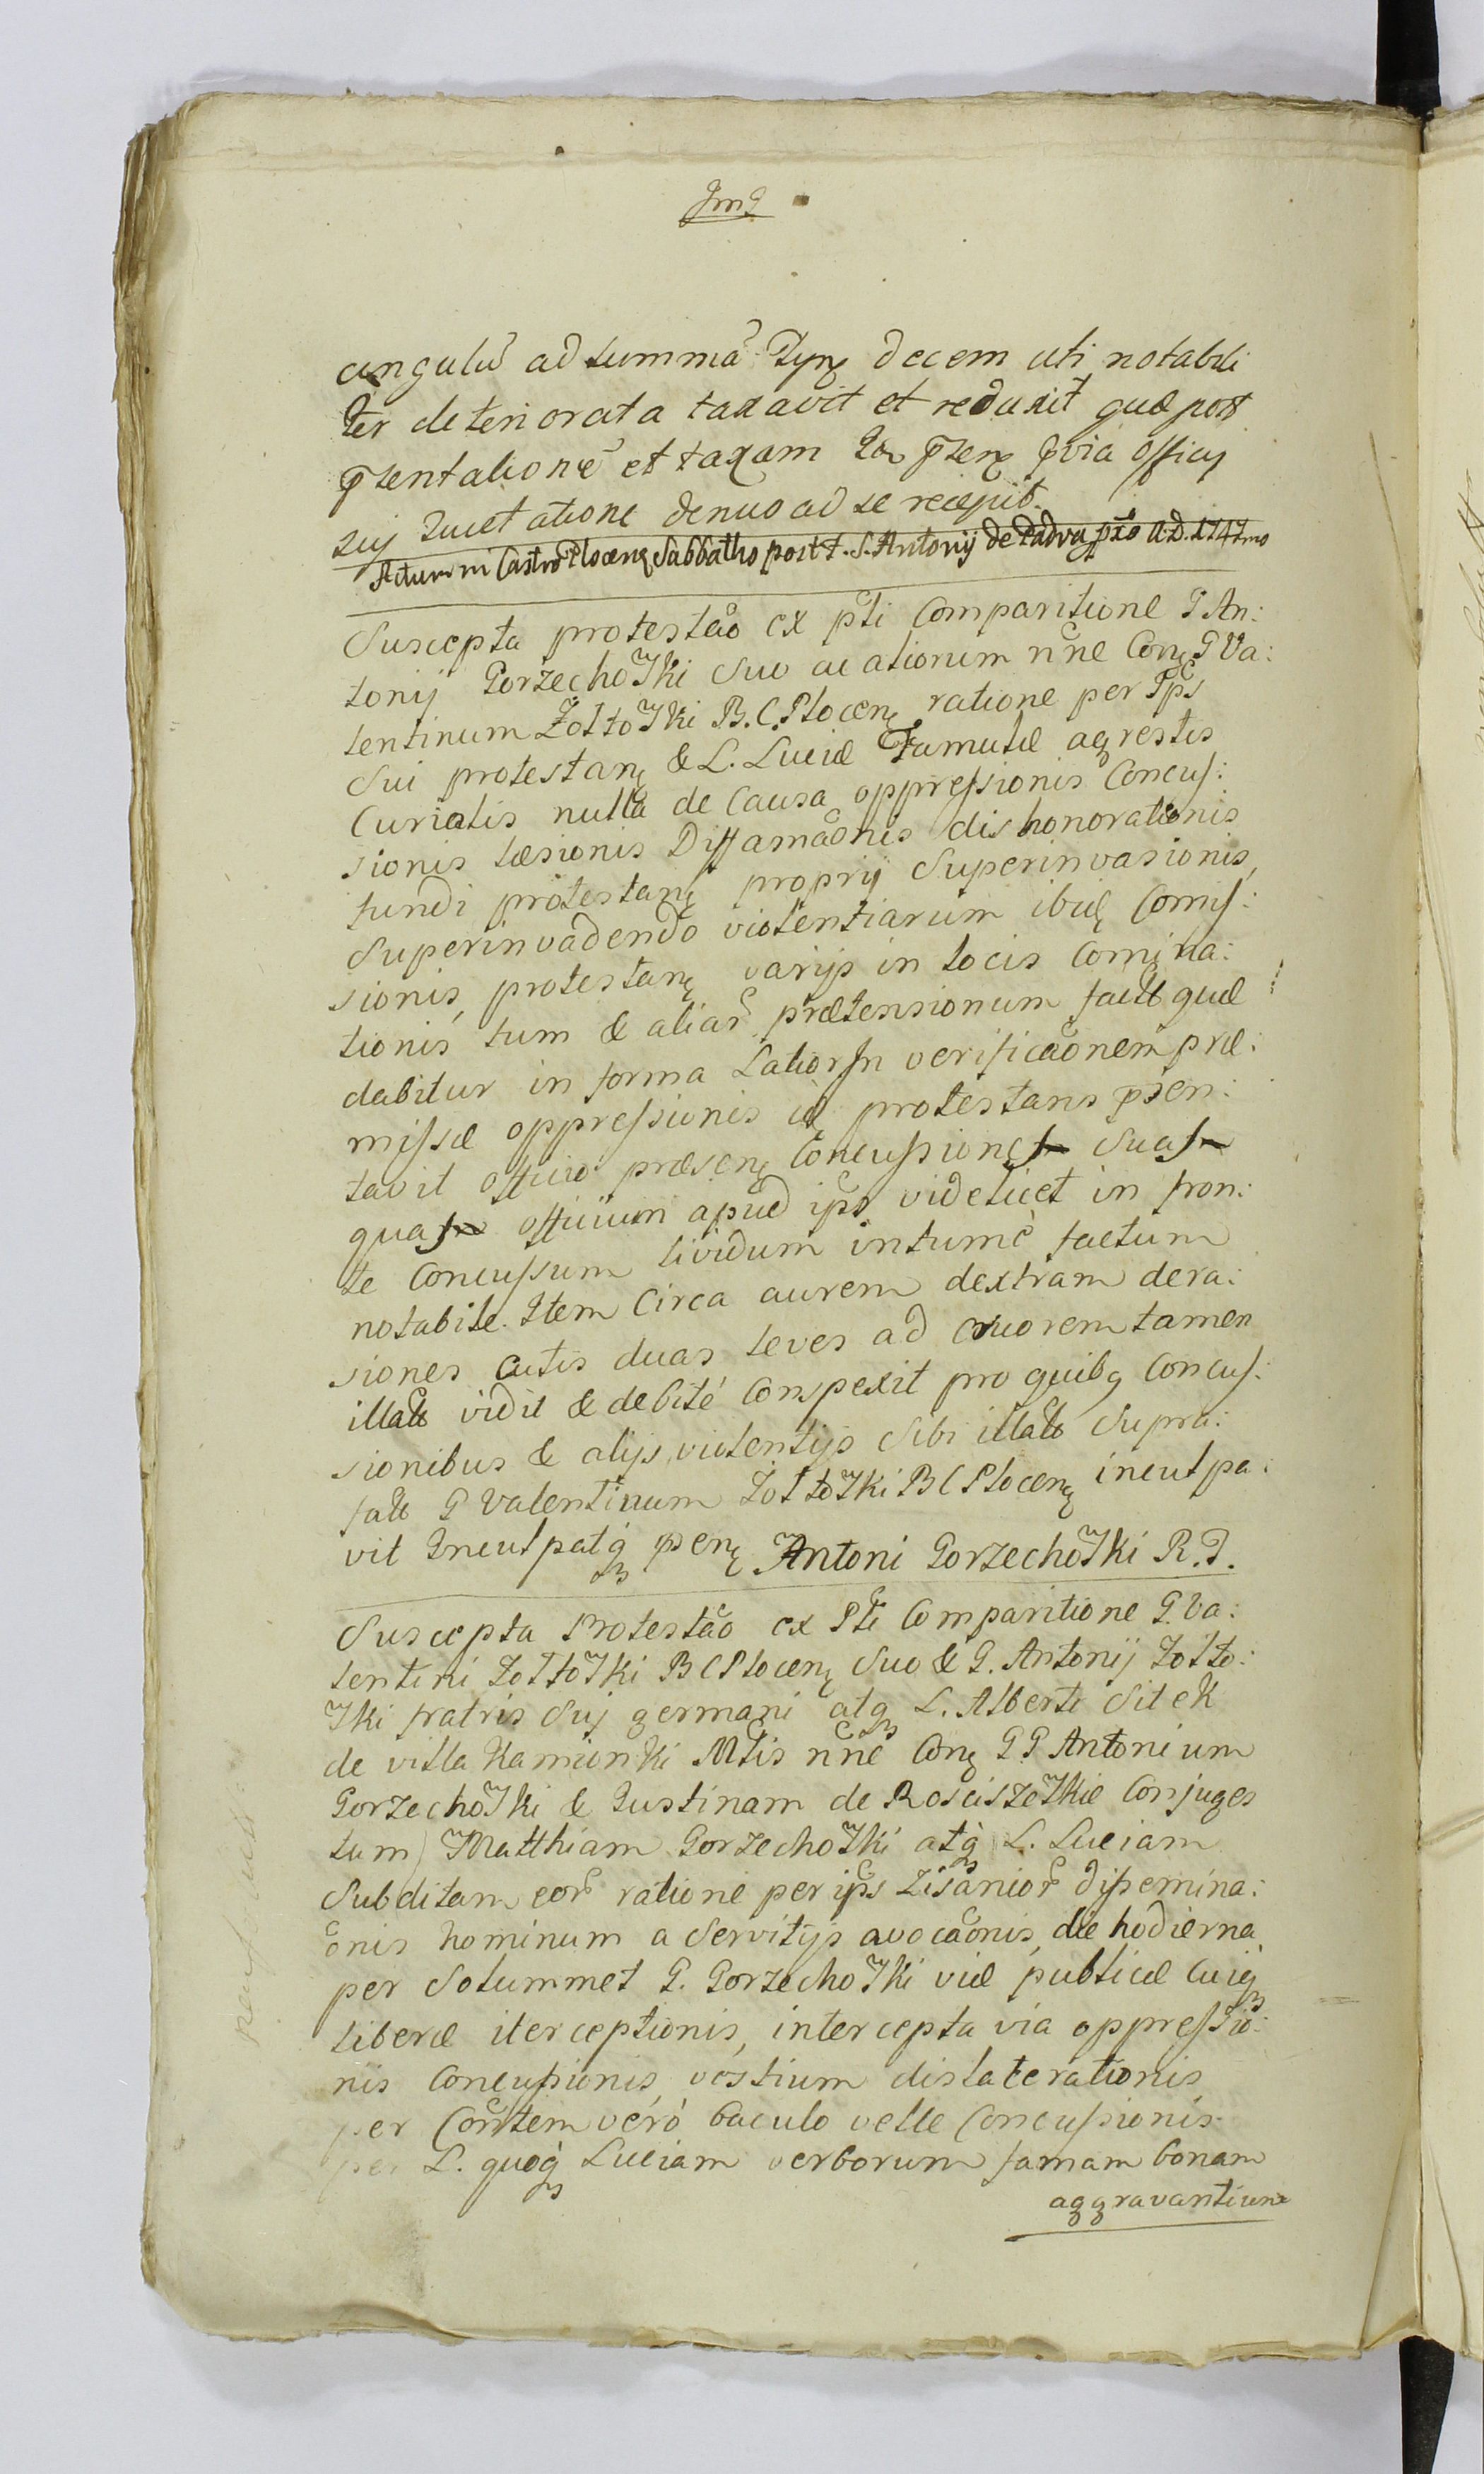 cingulũ ad summã Tynę decem uti notabili
ter deteriorata taxavit et reduxit quæ post
pῖsentationẽ et taxam pῖsenę pvia officij
sui Quietatione denuo ad se recepit.
Actum in Castro Plocenę Sabbatho post f. S. Antonij de Padva pxõ A.D. 1747mo
Suscepta protestão ex pti Comparitione G An:
tonij Gorzechowski suo ac aliorum nñe Conę G Va:
lentinum Żółtowski B. C. Plocenę ratione per Ips
sui protestanę & L. Luciæ Famulæ agrestis
Curialis nulla de Causa oppressionis Concus:
sionis læsionis Diffamãonis dishonorationis
fundi protestanę proprij Superinvasionis,
Superinvadendo violentiarum ibidę Comis:
sionis, protestanę varijs in locis Comina:
tionis tum & aliar prætensionum fact quæ
dabitur in forma Latior In verificãonem præ:
missæ oppressionis idę protestans psen:
tavit officio præsenę Concussiones suas
quas officium apud ips videlicet in fron:
te Concussum lividum intumẽ factum
notabile. Item Circa aurem dextram dera:
siones cutis duas leves ad cruorem tamen
illatt vidit & debité Conspexit pro quibq Concus:
sionibus & alijs violentijs sibi illatt Supra:
fatt G Valentinum Żółtowski B C Plocenę inculpa:
vit Inculpatq psenę Antoni Gorzechowski R.P.
Suscepta Protestão ex Pti Comparitione G. Va:
lentini Żołtowski B C Plocenę Suo & G. Antonij Żołto:
wski fratris Suj germani atq L. Alberti Sitek
de villa Kamionki Mtis nñe Conę G G Antonium
Gorzechowski & Justinam de Rosciszewskie Conjuges
tum Matthiam Gorzechowski atq L. Luciam
Subditam eor ratione per ips Zisanior dissemina:
õnis hominum a Servitijs avocãonis, die hodierna
per Solummet G. Gorzechowski viæ publicæ cuiq
liberæ iterceptionis, intercepta via oppressio:
nis Concussionis, vestium dislacerationis
per Consortem véró baculo velle Concussionis
per L. quoq Luciam verborum famam bonam
aggravantium